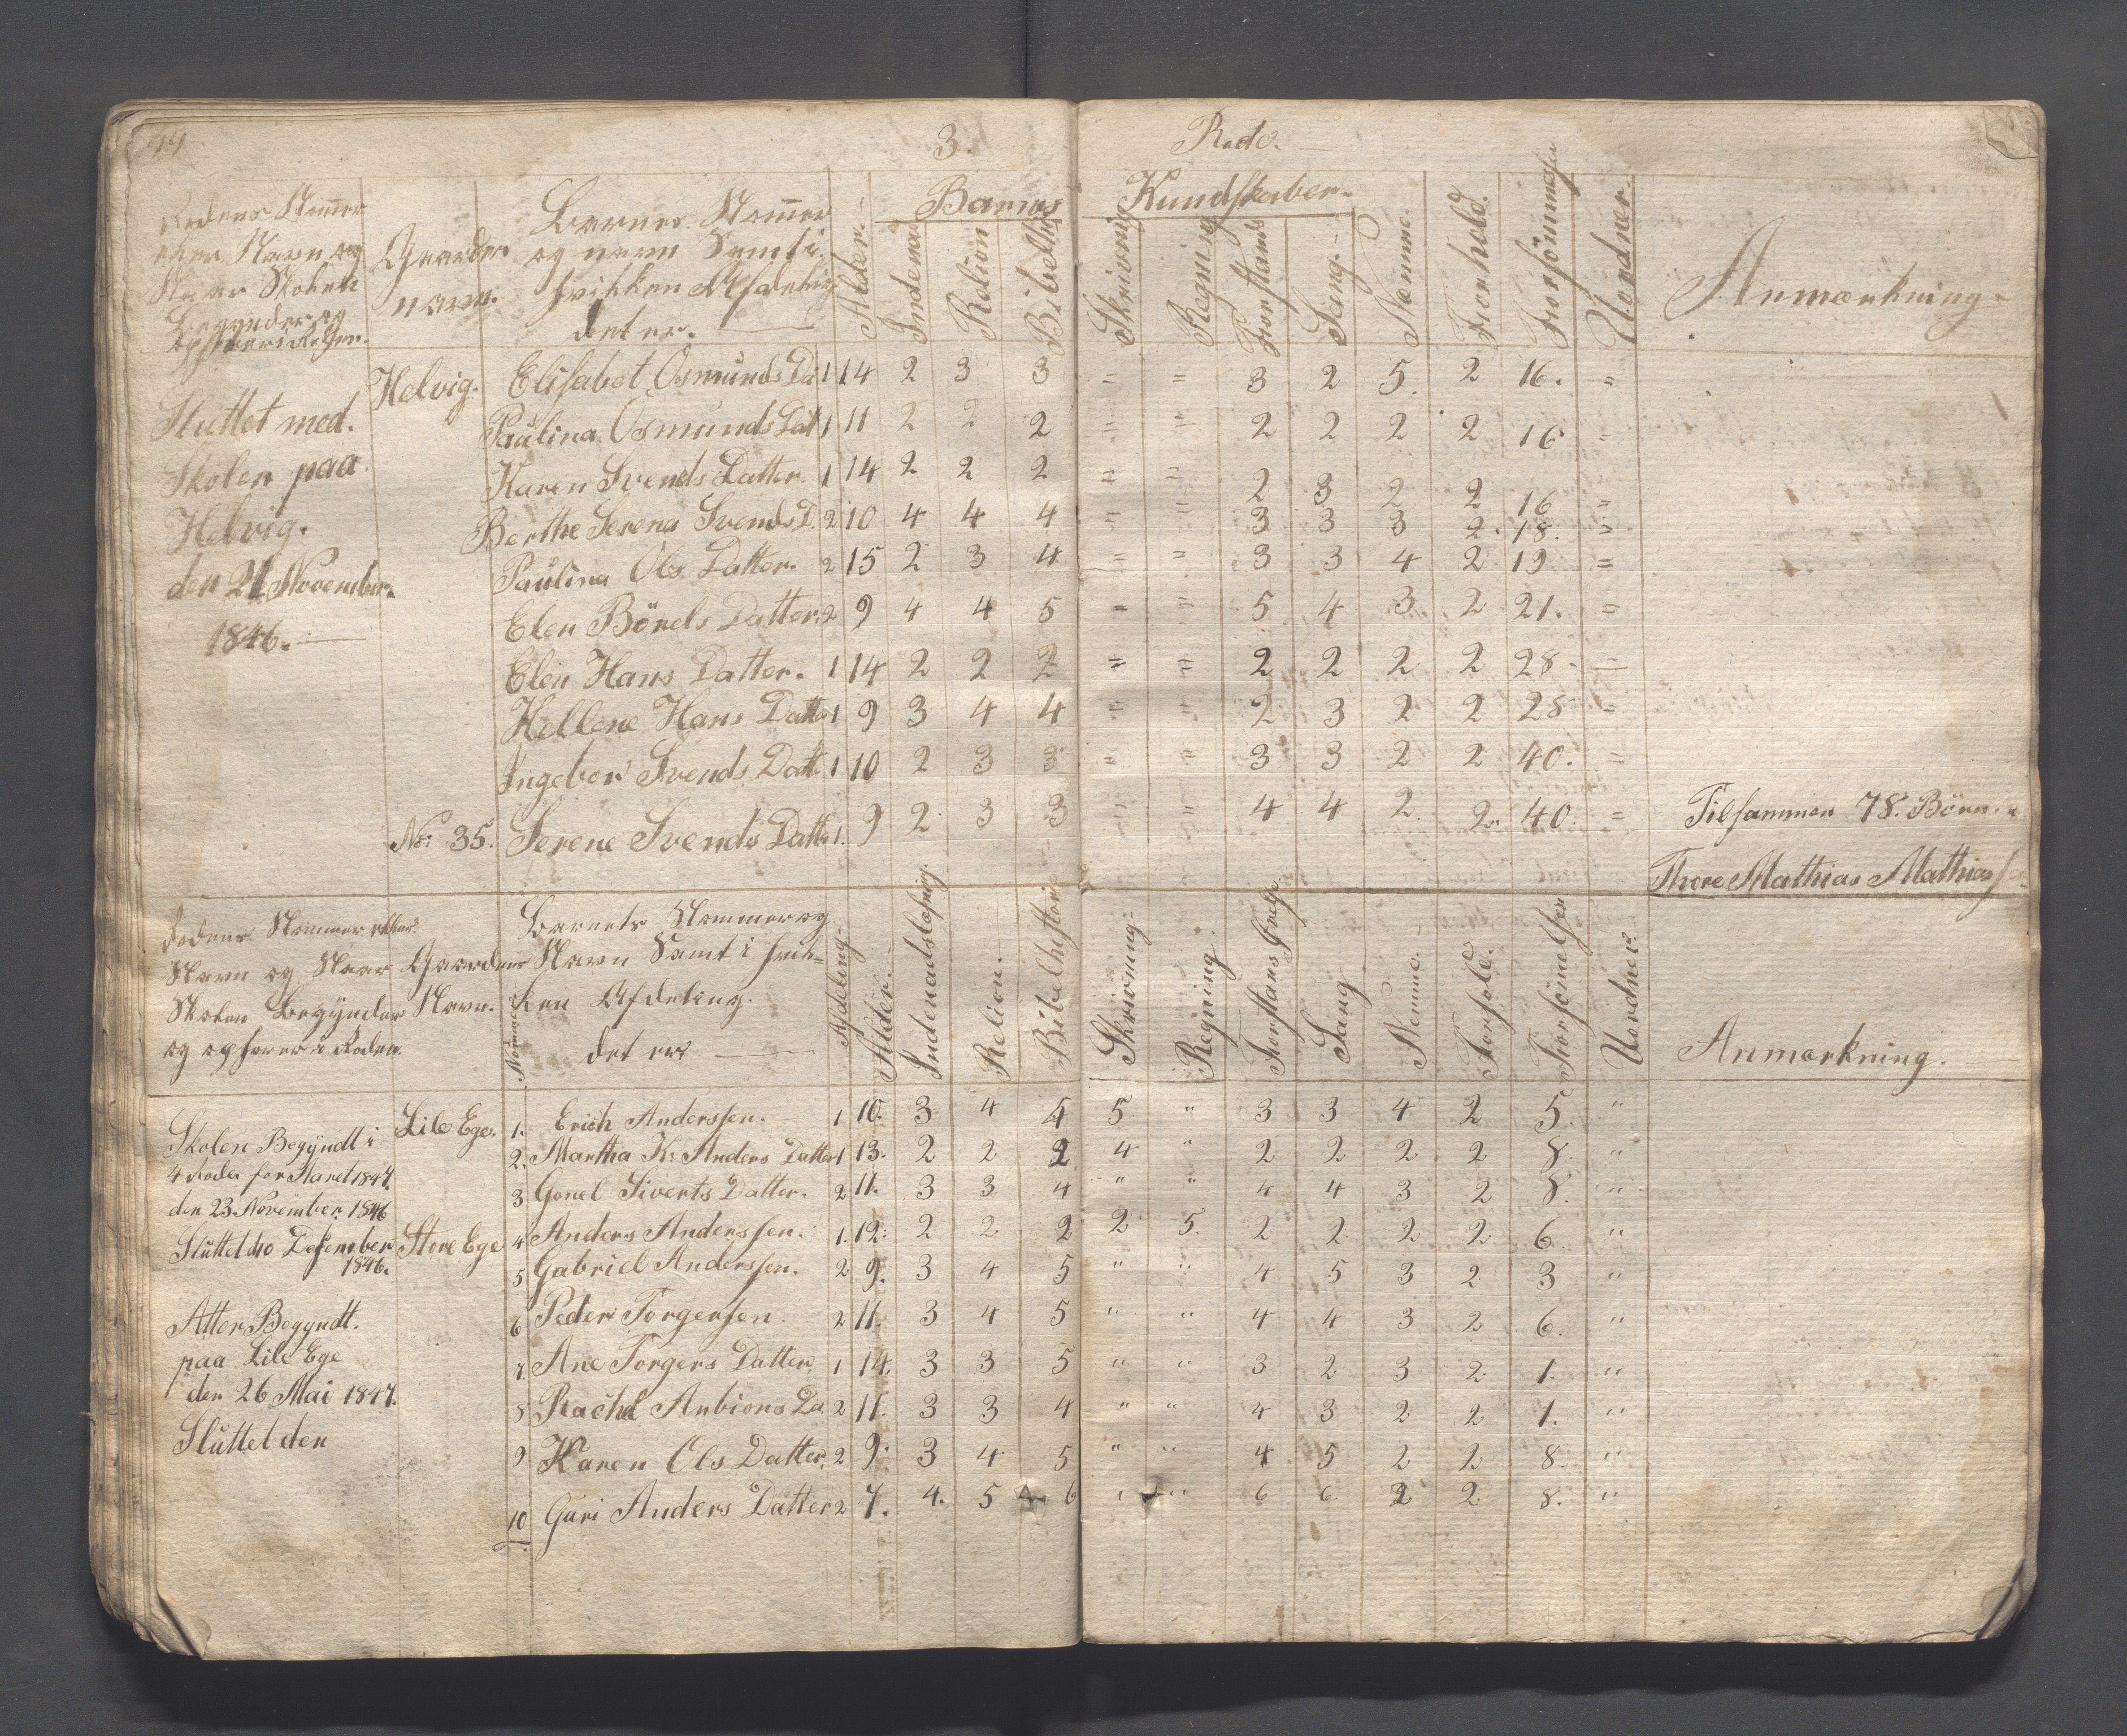 44
3. Rode.
Rodens Nommer
eller Navn og
Naar Skolen
Begynder og
ophører i Roden.
Gaardens
navn.
Barnes Nommer
og navn Samt i
hvilken Afdeling
det er.
Alder.
Barnes Kundskaber.
Indena
Relion
Bibelhi
Skrivning
Regning
Forstands
Sang.
Stemme.
Forhold.
Forsömmelse
Uordner.
Anmærkning.
Sluttet med.
Skolen paa
Helvig.
den 21 November.
1846.
Helvig. Elisabet Osmunds Da 1 14 2 3 3 = = 3 2 5. 2 16. =
Paulina Osmunds Dat 1 11 2 2 2 = = 2 2 2 2 16 =
Karen Svends Datter. 1 14 2 2 2 = = 2 3 2 2 16 =
Berthe Serena Svends D. 2 10 4 4 4 = = 3 3 3 2. 18. =
Paulina Ols Datter. 2 15 2 3 4 = = 3 3 4 2 19 =
Elen Börels Datter. 2 9 4 4 5 = = 5 4 3 2 21. =
Elen Hans Datter. 1 14 2 2 2 = = 2 2 2 2 28. =
Hellene Hans Datte 1 9 3 4 4 = = 2 3 2 2 28 =
Ingebor Svends Datt 1 10 2 3 3 = = 3 3 2 2 40. =
No: 35. Serene Svends Datte 1. 9 2 3 3 = = 4 4 2. 2. 40. = Tilsammen 78. Börn.
Thore Mathias Mathiasse
Rodens Nommer eller
Navn og Naar
Skolen Begynder
og ophører i Roden.
Gaardens
Navn.
Nommer
Barnets Nommer og
Navn Samt i hvil-
ken Afdeling.
det er
Afdeling.
Alder.
Indenadslæsning.
Relion.
Bibelhistori
Skrivning.
Regning
Forstans
Sang
Stemme.
Forhold.
Forsömmelser
Uordner.
Anmærkning.
Skolen Begyndt i
4 Roder for Aaret 1847.
den 23 November 1846
Sluttet d 10 Desember
1846.
Atter Begyndt.
paa Lile Ege
den 26 Mai 1847.
Sluttet den
Lile Ege. 1. Erich Anderssen. 1 10. 3 4 4 5 " 3 3 4 2 5. "
2. Martha K: Anders Datter 1 13. 2 2 2 4 " 2 2 2 2 8. "
3 Gonel Siverts Datter. 2 11. 3 3 4 " " 4 4 3 2 8. "
Store Ege 4 Anders Anderssen. 1. 12. 2 2 2 2 5. 2 2 2 2 6. "
5 Gabriel Anderssen. 2 9. 3 4 5 " " 4 5 3 2 3 "
6 Peder Torgersen. 2 11. 3 4 5 " " 4 4 3 2 6. "
7. Ane Torgers Datter. 1 14. 3 3 5 " " 3 2 3 2. 1. "
8 Rachel Anbions Da 2 11. 3 3 4 " " 4 3 2 2 1. "
9 Karen Ols Datter. 2 9. 3 4 5 " " 4 5 2 2 8. "
10 Guri Anders Datter 2 7. 4. 5 6 " " 6 6 2 2 8. "